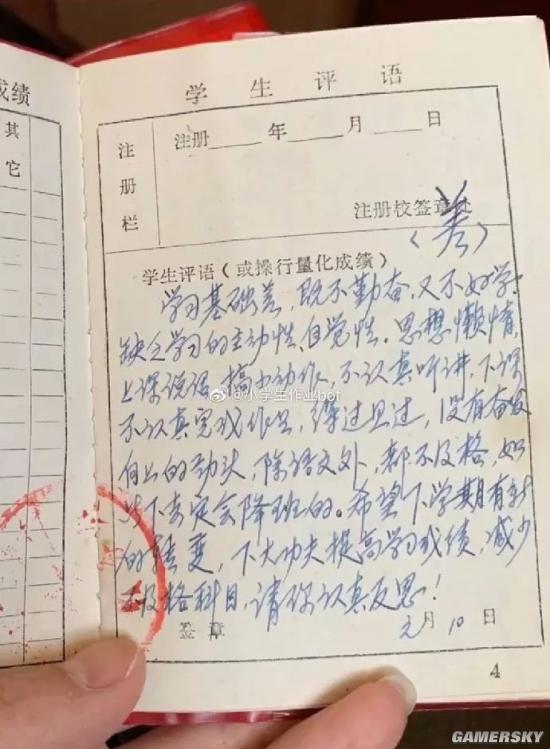 成绩
其
它
学生评语
注册栏
注册____年____月____日
注册校签章处
(差)
学生评语(或操行量化成绩)
学习基础差,既不勤奋,又不好学,
缺乏学习的主动性、自觉性。思想懒惰,
上课说话、搞小动作,不认真听讲,下课
不认真完成作业,得过且过,没有奋发
向上的劲头,除语文外,都不及格,如
此下去定会降班的。希望下学期有新
的转变,下大功夫提高学习成绩,减少
不及格科目,请你认真反思!
签章
元月10日
4
@小学生作业bot
GAMERSKY